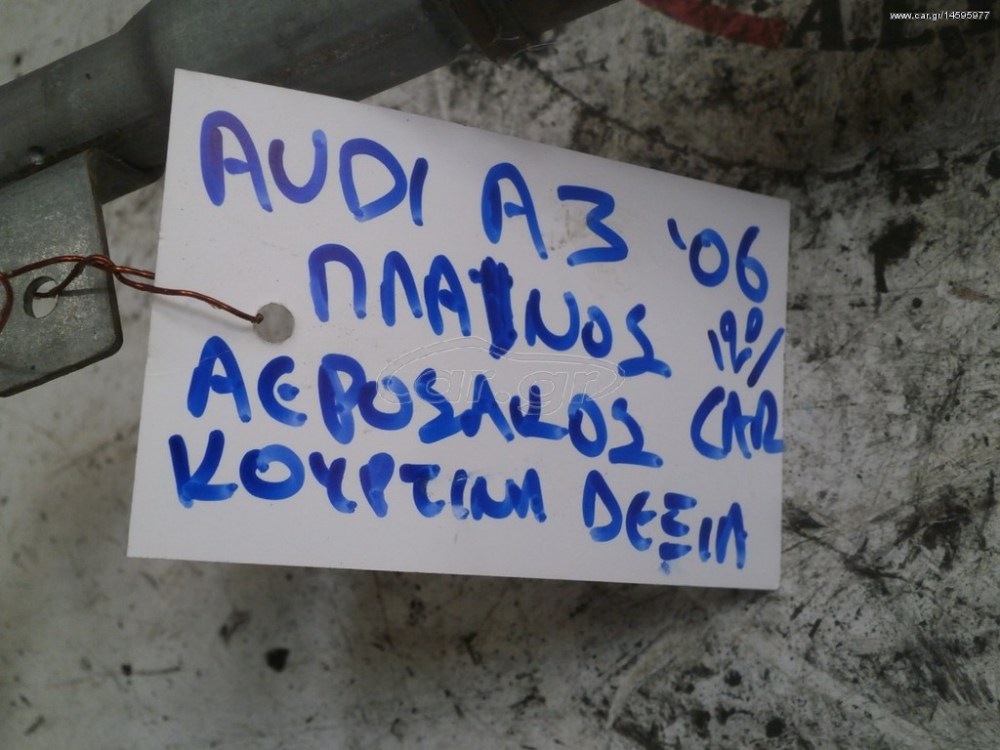 www.car.gr/14595977
AUDI A3 '06
ΠΛΑΙΝΟΣ
ΑΕΡΟΣΑΚΟΣ CAR
ΚΟΥΡΤΙΝΑ ΔΕΞΙΑ
car.gr